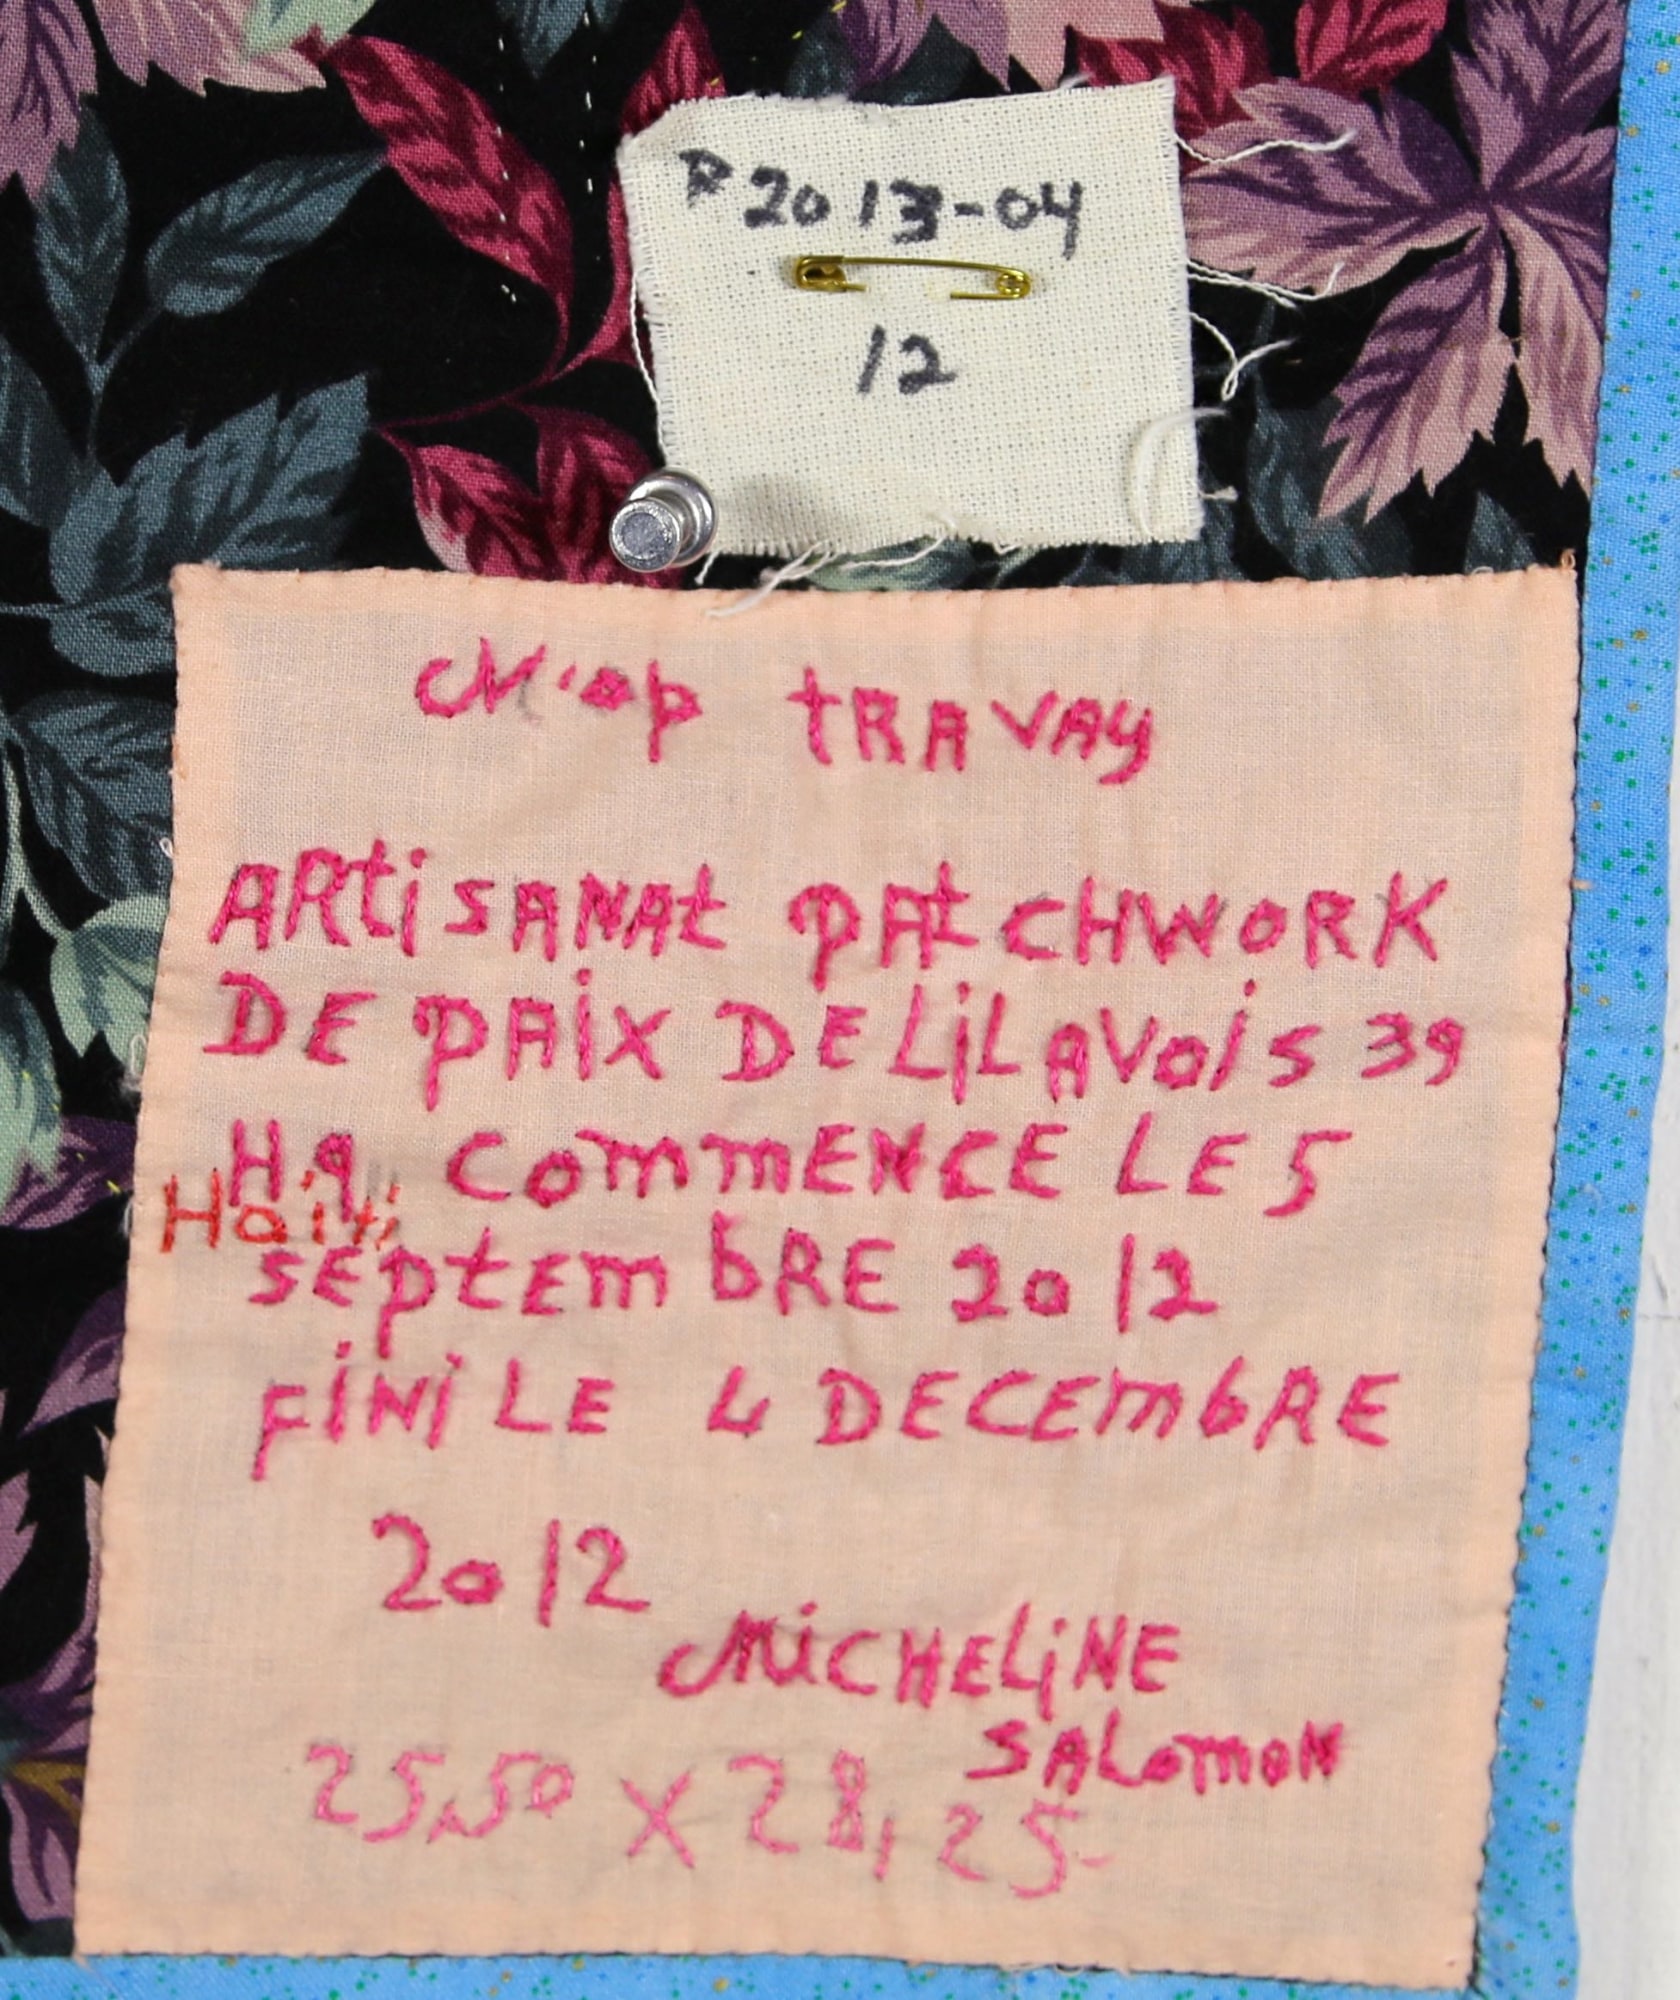 P2013-04
12
M'ap tRAVAy
ARtisANAt pAtCHWORK
DE pAix DE LiLAVois 39
Hq COmmENCE LE 5
Haiti
sEptEmbRE 2012
FiNi LE 4 DECEmbRE
2012
MiCHELiNE
SALomoN
25,50 x 28,25